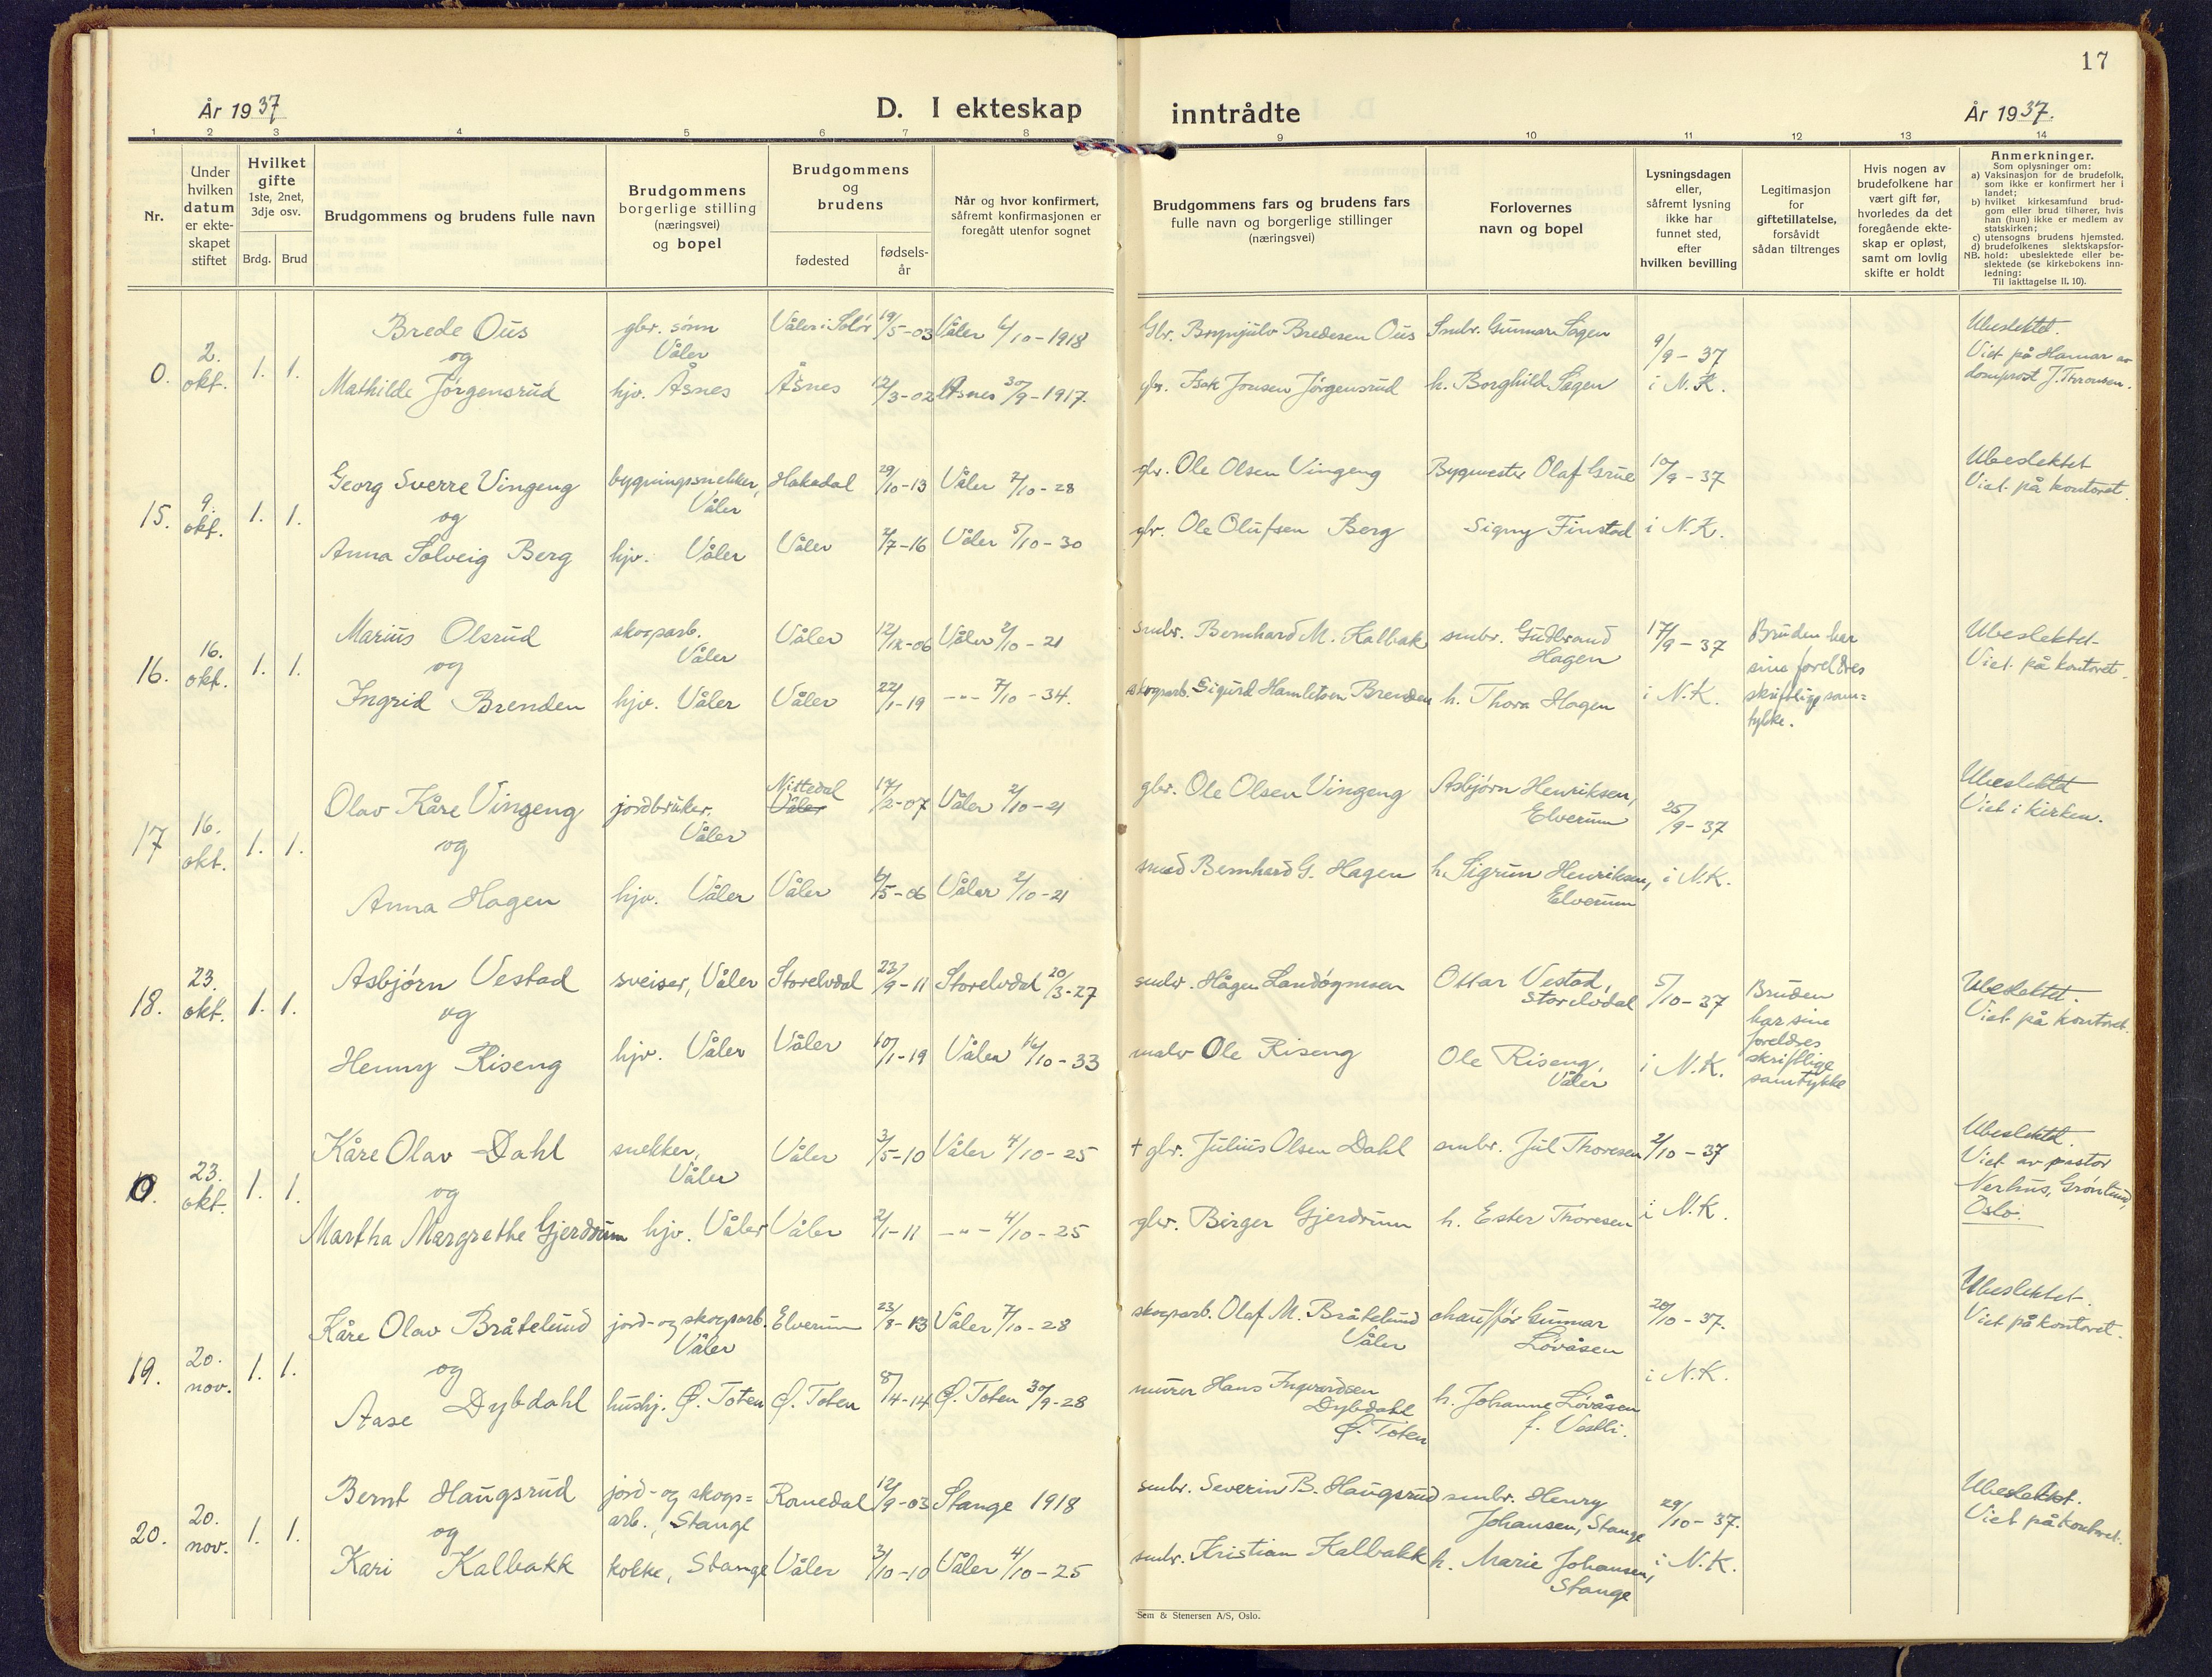 17
År 1937
D. I ekteskap inntrådte
År 1937.
1 2 3 4 5 6 7 8 9 10 11 12 13 14
Nr.
Under hvilken datum er ekteskapet stiftet
Hvilket gifte 1ste, 2net, 3dje osv.
Brdg. Brud
Brudgommens og brudens fulle navn
Brudgommens borgerlige stilling (næringsvei) og bopel
Brudgommens og brudens
fødested
fødselsår
Når og hvor konfirmert, såfremt konfirmasjonen er foregått utenfor sognet
Brudgommens fars og brudens fars fulle navn og borgerlige stillinger (næringsvei)
Forlovernes navn og bopel
Lysningsdagen eller, såfremt lysning ikke har funnet sted, efter hvilken bevilling
Legitimasjon for giftetillatelse, forsåvidt sådan tiltrenges
Hvis nogen av brudefolkene har vært gift før, hvorledes da det foregående ekteskap er opløst, samt om lovlig skifte er holdt
Anmerkninger.
Som oplysninger om:
a) Vaksinasjon for de brudefolk, som ikke er konfirmert her i landet;
b) hvilket kirkesamfund brudgom eller brud tilhører, hvis han (hun) ikke er medlem av statskirken;
c) utensogns brudens hjemsted.
d) brudefolkenes slektskapsforhold: ubeslektede eller beslektede (se kirkebokens innledning:
NB.
Til iakttagelse II. 10).
0. 2. okt. 1. 1.
Brede Ous
gbr. sønn Våler
Våler i Solør 19/5-03 Våler 6/10-1918
Gbr. Brynjulv Bredesen Ous
Smbr. Gunnar Sagen
9/9-37 i N.K.
Ubeslektet. Viet på Hamar av domprost J. Thronsen.
og
Mathilde Jørgensrud
hjv. Åsnes
Åsnes 12/3-02 Åsnes 30/9-1917.
gbr. Isak Jonsen Jørgensrud
h. Borghild Sagen
15. 9. okt. 1. 1.
Georg Sverre Vingeng
bygningssnekker, Våler
Hakadal 29/10-13 Våler 7/10-28
gbr. Ole Olsen Vingeng
Bygmester Olaf Grue
10/9-37 i N.K.
Ubeslektet Viet på kontoret.
og
Anna Solveig Berg
hjv. Våler
Våler 2/7-16 Våler 5/10-30
gbr. Ole Olufsen Berg
Signy Finstad
16. 16. okt. 1. 1.
Marius Olsrud
skogsarb. Våler
Våler 12/12-06 Våler 2/10-21
smbr. Bernhard M. Kalbak
smbr. Gudbrand Hagen
17/9-37 i N.K.
Bruden har sine foreldres skriftlige samtykke.
Ubeslektet Viet på kontoret.
og
Ingrid Brenden
hjv. Våler
Våler 22/1-19 -"- 7/10-34.
skogsarb. Sigurd Hamletsen Brenden
h. Thora Hagen
17 16. okt. 1. 1.
Olav Kåre Vingeng
jordbruker. Våler
Nittedal Våler 17/2-07 Våler 2/10-21
gbr. Ole Olsen Vingeng
Asbjørn Henriksen, Elverum
25/9-37 i N.K.
Ubeslektet Viet i kirken.
og
Anna Hagen
hjv. Våler
Våler 6/5-06 Våler 2/10-21
smed Bernhard G. Hagen
h. Sigrun Henriksen, Elverum
18. 23. okt. 1. 1.
Asbjørn Vestad
sveiser, Våler
Storelvdal 23/9-11 Storelvdal 20/3-27
smbr. Hågen
Ottar Vestad, Storelvdal
5/10-37 i N.K.
Bruden har sine foreldres skriftlige samtykke
Ubeslektet. Viet på kontoret.
og
Henny Riseng
hjv. Våler
Våler 10/1-19 Våler 16/10-33
Ole Riseng
Ole Riseng, Våler
0. 23. okt. 1. 1.
Kåre Olav Dahl
snekker, Våler
Våler 3/5-10 Våler 4/10-25
+ gbr. Julius Olsen Dahl
smbr. Jul Thoresen
2/10-37 i N.K.
Ubeslektet. Viet av pastor Nerhus, Grønlund, Oslo.
og
Martha Margrethe Gjerdrum
hjv. Våler
Våler 2/1-11 -"- 4/10-25
gbr. Birger Gjerdrum
h. Ester Thoresen
19. 20. nov. 1. 1.
Kåre Olav Bråtelund
jord- og skogsarb. Våler
Elverum 23/8-13 Våler 7/10-28
skogsarb. Olaf M. Bråtelund Våler
chauffør Gunnar Løvåsen
20/10-37. i N.K.
Ubeslektet. Viet på kontoret.
og
Aase Dybdahl
hushj. Ø. Toten
Ø. Toten 8/4-14 Ø. Toten 30/9-28
murer Hans Ingvardsen Dybdahl Ø. Toten
h. Johanne Løvåsen f. Vestli.
20. 20. nov. 1. 1.
Bernt Haugsrud
jord- og skogs= arb., Stange
Romedal 12/9-03 Stange 1918
smbr. Severin B. Haugsrud
smbr. Henry Johansen, Stange
29/10-37. i N.K.
Ubeslektet. Viet på kontoret.
og
Kari Kalbakk
kokke, Stange
Våler 3/10-10 Våler 4/10-25
smbr. Kristian Kalbakk
h. Marie Johansen, Stange
Sem & Stenersen A/S, Oslo.